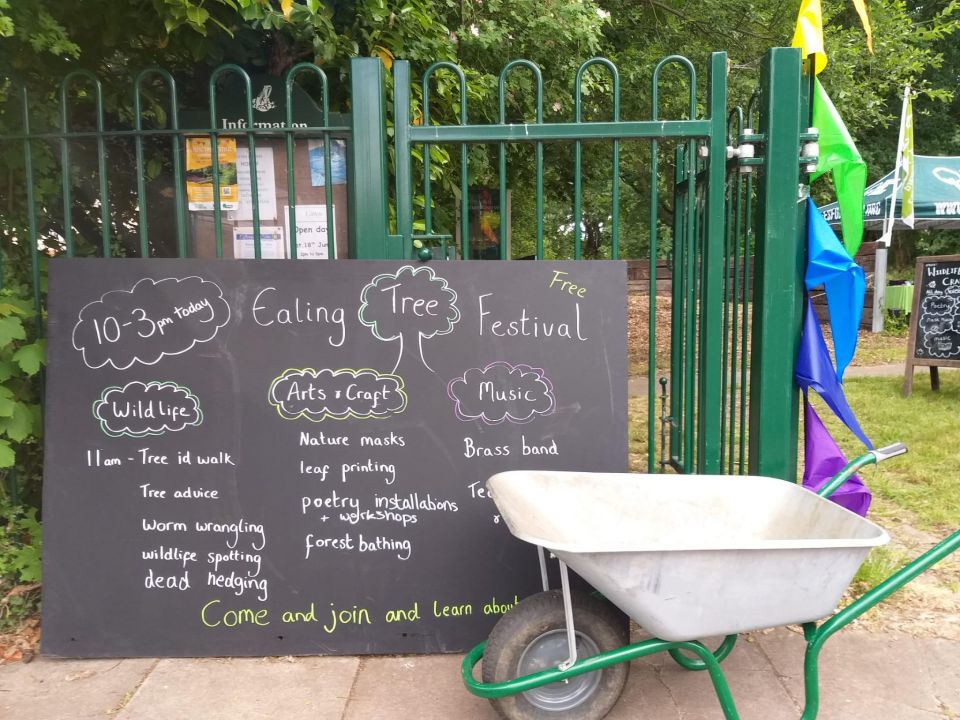 Information
Open day
10-3pm today
Ealing Tree Festival
Free
Wildlife
11am - Tree id walk
Tree advice
Worm wrangling
wildlife spotting
dead hedging
Arts & Craft
Nature masks
leaf printing
poetry installations
+ workshops
forest bathing
Music
Brass band
Come and join and learn about